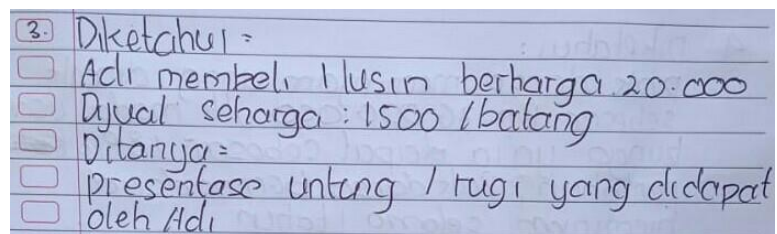 3. Diketahui =
Adi membeli 1 lusin berharga 20.000
Dijual seharga : 1500 / batang
Ditanya =
presentase untung / rugi yang didapat
oleh Adi